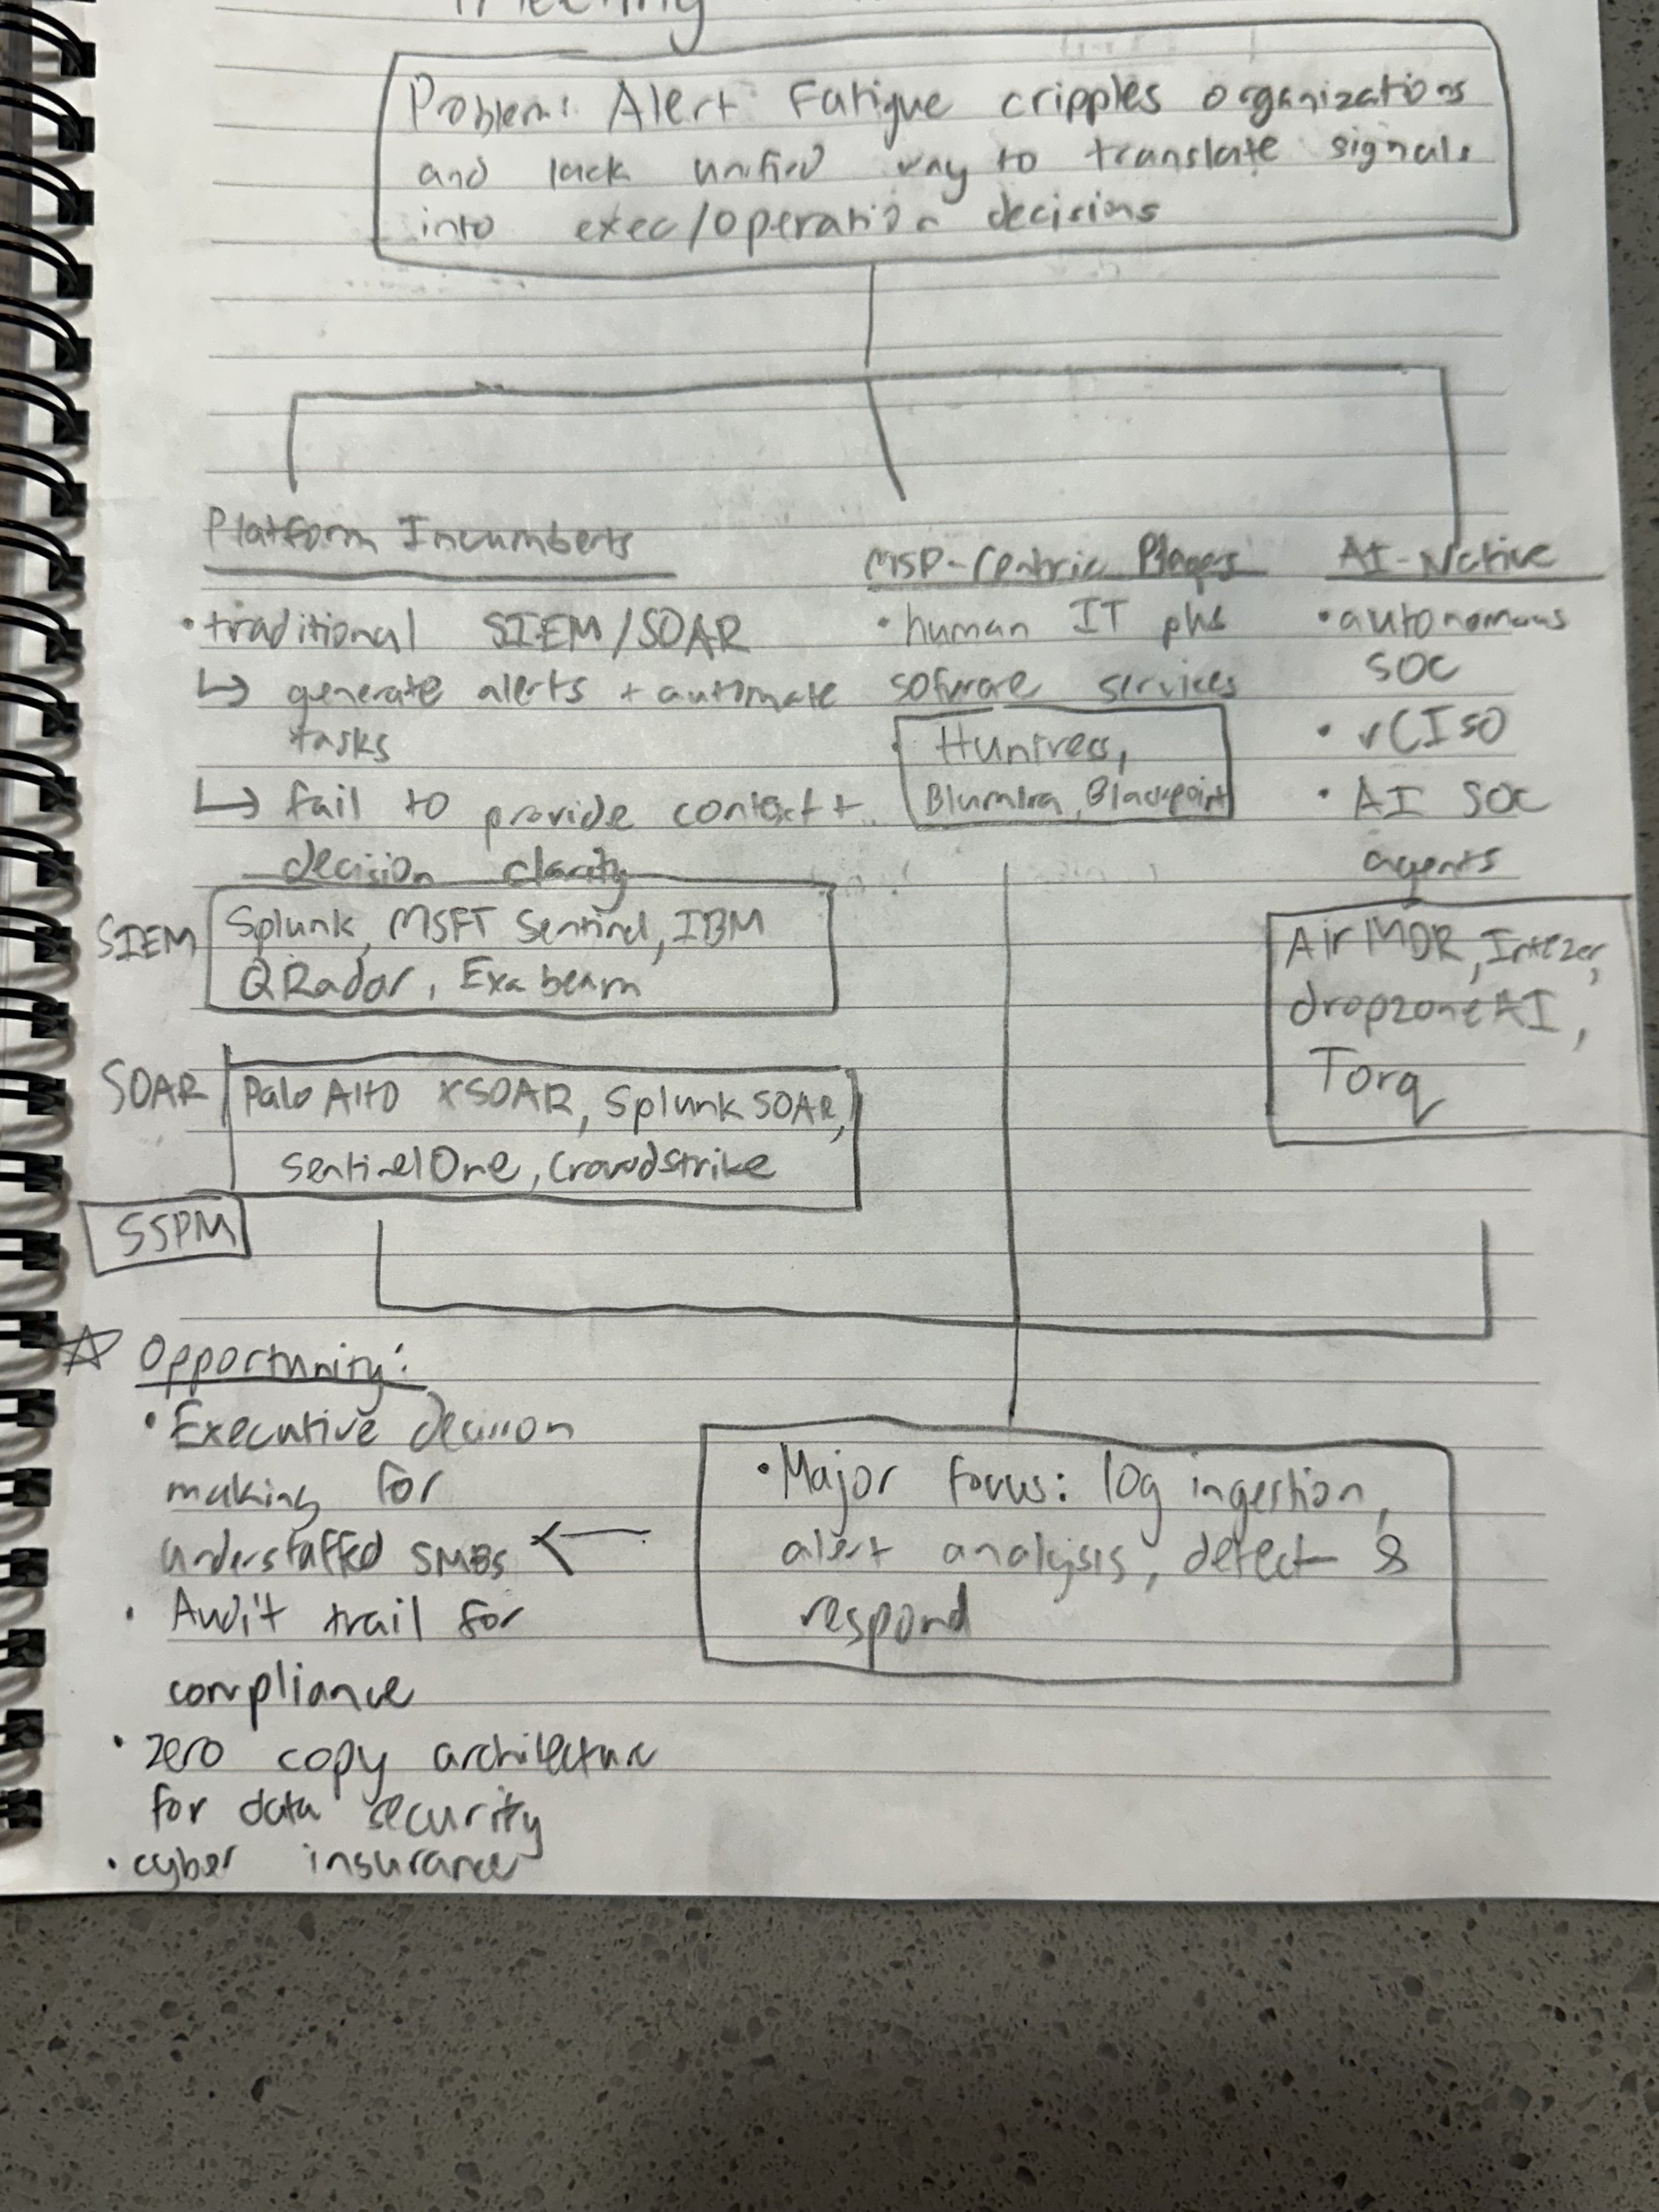 Meeting
Problem: Alert Fatigue cripples organizations
and lack unified way to translate signals
into exec/operation decisions
Platform Incumbents
• traditional SIEM/SOAR
↳ generate alerts + automate
tasks
↳ fail to provide context +
decision clarity
SIEM
Splunk, MSFT Sentinel, IBM
QRadar, Exabeam
SOAR
Palo Alto XSOAR, Splunk SOAR,
SentinelOne, Crowdstrike
SSPM
MSP-Centric Players
• human IT plus
software services
Huntress,
Blumira, Blackpoint
AI-Native
• autonomous
SOC
• vCISO
• AI SOC
agents
AirMDR, Intezer,
dropzone AI,
Torq
• Major focus: log ingestion,
alert analysis, detect &
respond
☆ Opportunity:
• Executive decision
making for
understaffed SMBs
• Audit trail for
compliance
• zero copy architecture
for data security
• cyber insurance